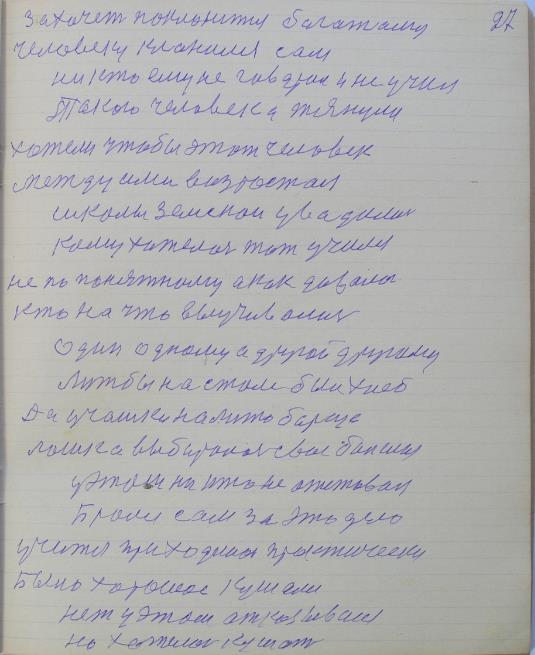 захочет поклонится багатаму 27
человеку кланился сам
ни кто ему не гаварил и не учил
Такого человека тянули
хотели чтобы этот человек
между ими возростал
школы земской увадилас
кому хотелос тот учился
не по понятному а как довалос
кто на что выучивалис
Один одному а другой другому
Литбы на столе был хлеб
Да у чашки налито борще
лошка выбиралас
у этом ни кто не
Брали сам за это дело
учится приходилос практически
было хорошее кушали
нет у этом отказывалис
но хотелос кушат